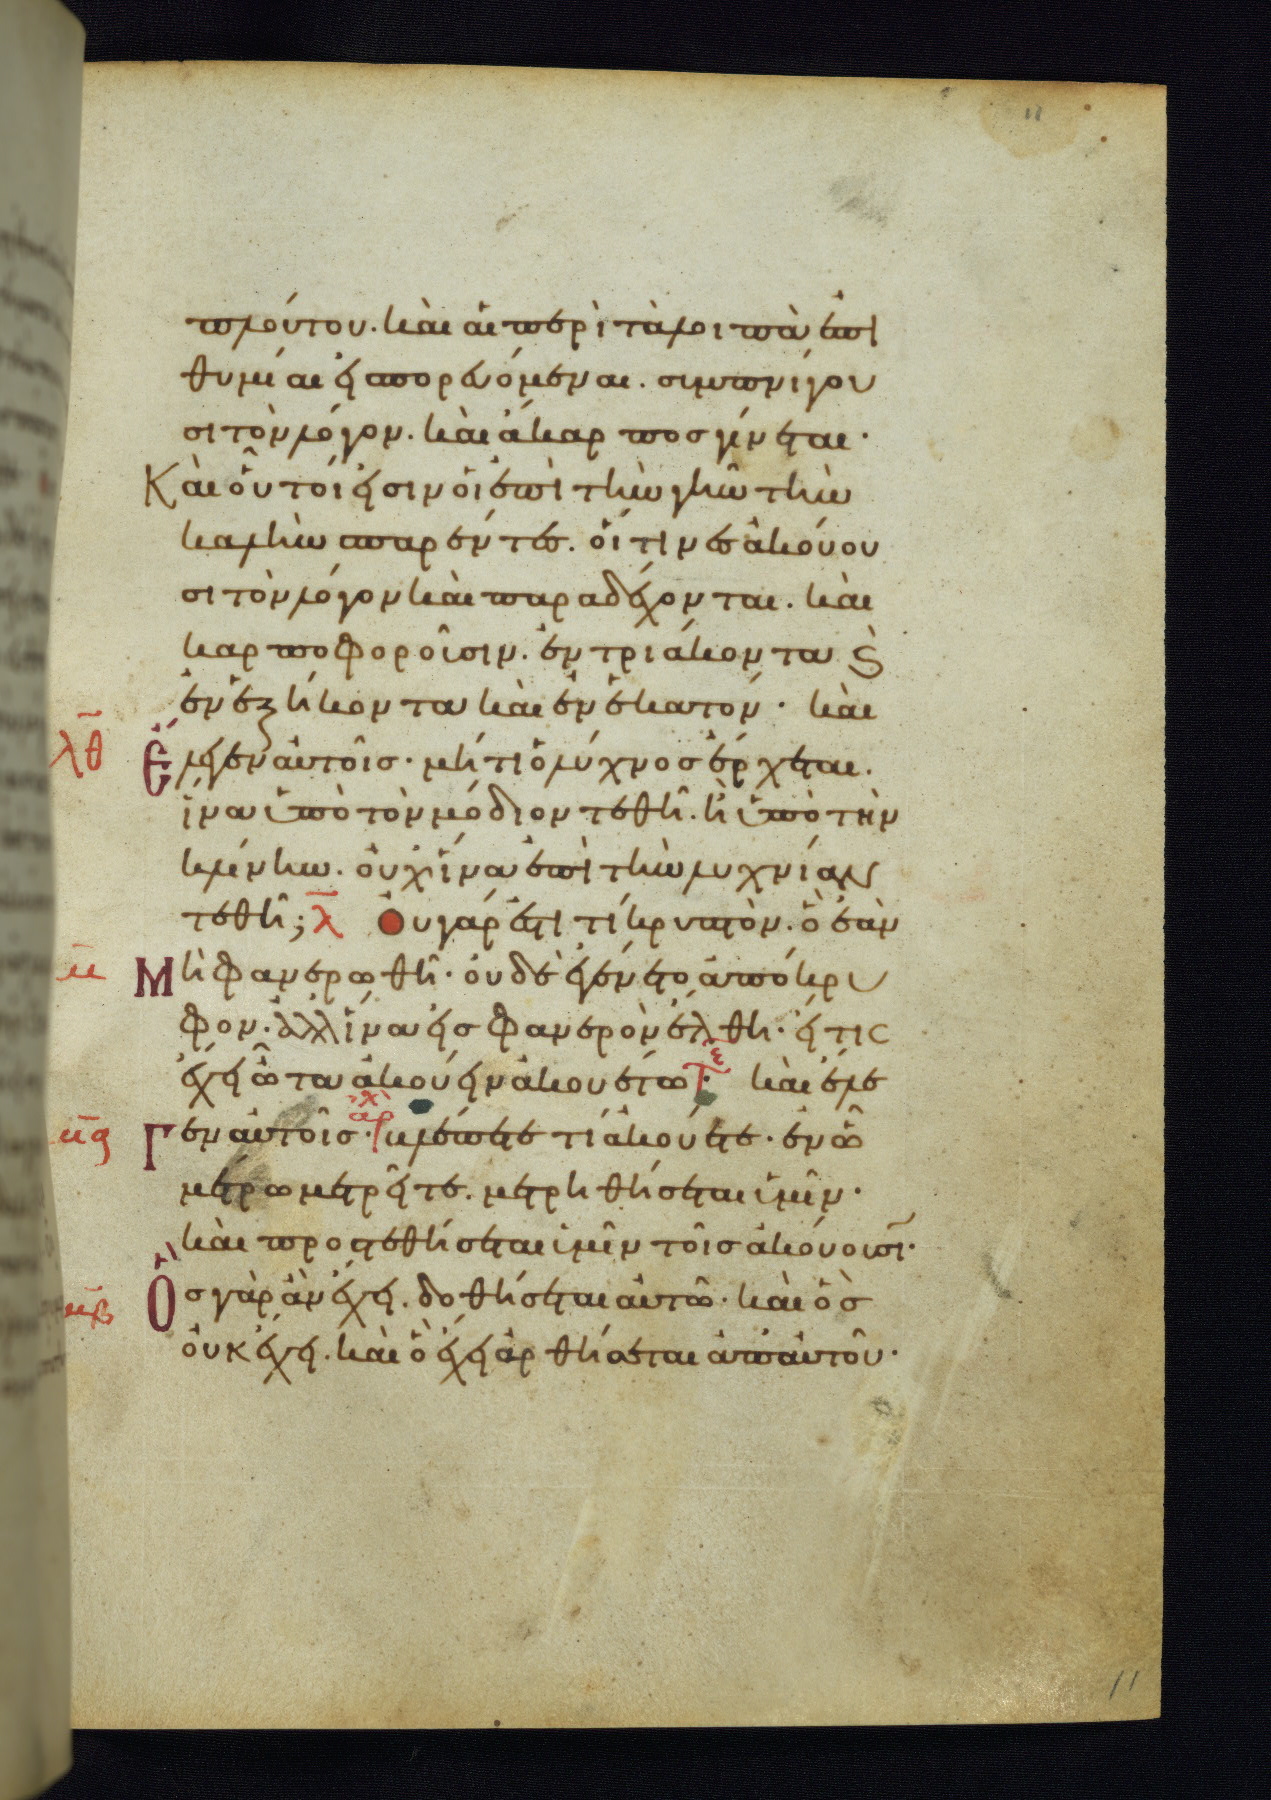 11
πλούτου. καὶ αἱ περὶ τὰ λοιπὰ ἐπι
θυμίαι εἰσπορευόμεναι. συμπνίγου
σι τὸν λόγον. καὶ ἄκαρπος γίνεται·
Καὶ οὗτοί εἰσιν οἱ ἐπὶ τὴν γῆν τὴν
καλὴν σπαρέντες. οἵτινες ἀκούου
σι τὸν λόγον καὶ παραδέχονται. καὶ
καρποφοροῦσιν. ἐν τριάκοντα ϗ
ἐν ἑξήκοντα καὶ ἐν ἑκατόν· καὶ
λθ Ἔλεγεν αὐτοῖς· μήτι ὁ λύχνος ἔρχεται.
ἵνα ὑπὸ τὸν μόδιον τεθῆ. ἢ ὑπὸ τὴν
κλίνην. οὐχ ἵνα ἐπὶ τὴν λυχνίαν
τεθῆ; λ Ου γάρ ἐστι τί κρυπτὸν. ὃ ἐὰν
μ Μὴ φανερωθῆ· οὐδὲ ἐγένετο ἀπόκρυ
φον. ἀλλ ἵνα εἰς φανερὸν ἔλθη· εἴ τις
ἔχει ὦτα ἀκούειν ἀκουέτω· τε καὶ ἔλε
μα Γεν αὐτοῖς· αρχ βλέπετε τί ἀκούετε· ἐν ὧ
μέτρω μετρεῖτε. μετρηθήσεται ὑμῖν·
καὶ προστεθήσεται ὑμῖν τοῖς ἀκούουσι·
μβ Ὃς γὰρ ἂν ἔχει. δοθήσεται αὐτῶ· καὶ ὃς
οὐκ ἔχει. καὶ ὃ ἔχει ἀρθήσεται ἀπ' αὐτοῦ·
11